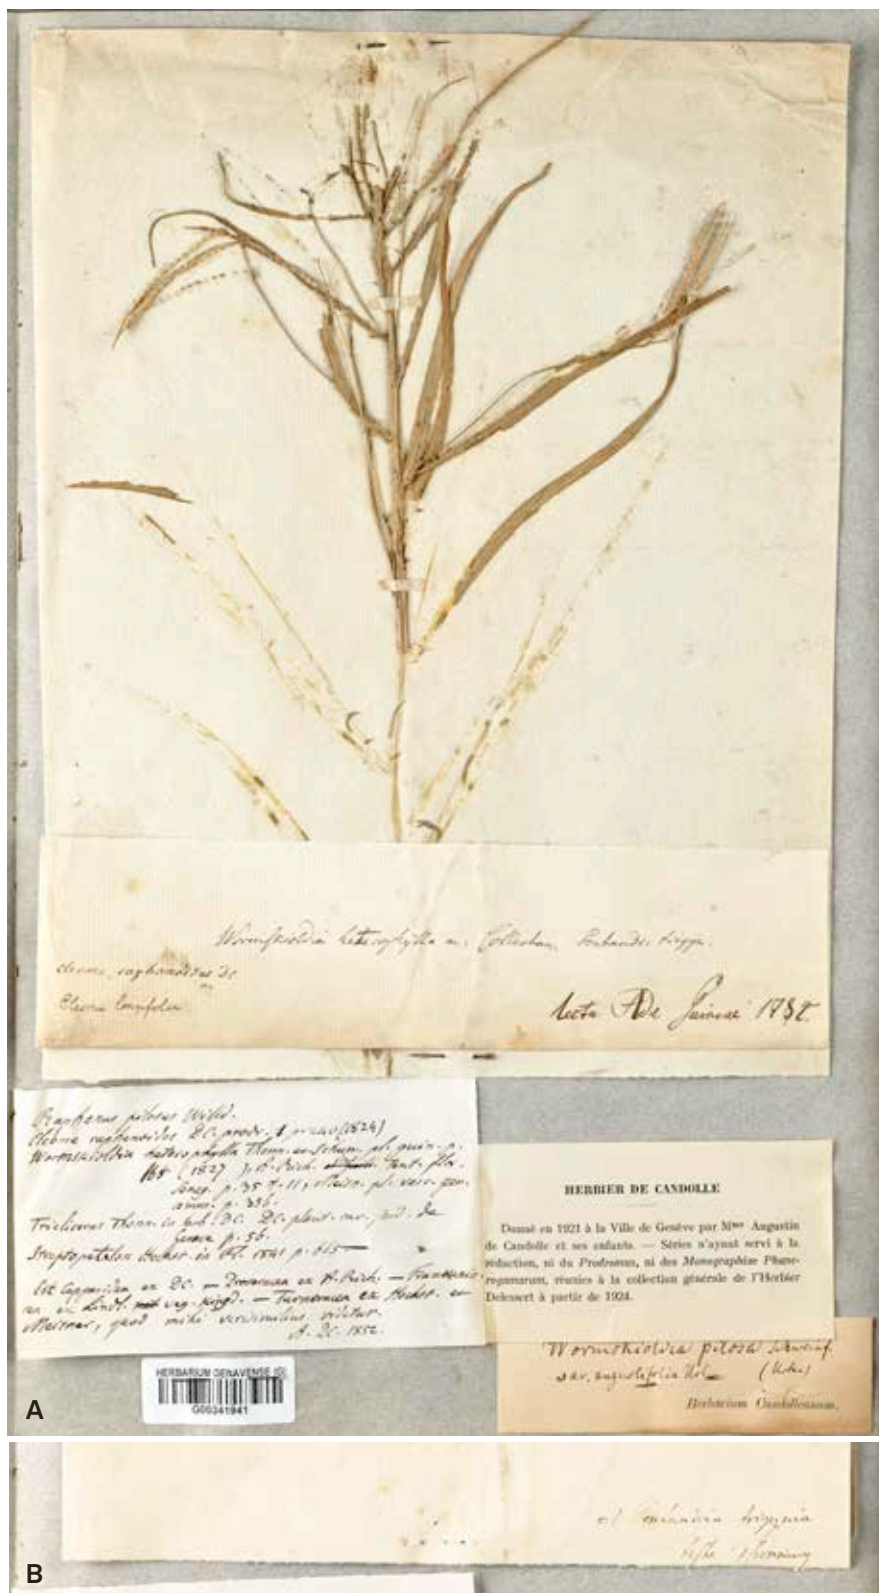 Wormskioldia heterophylla m.
cleome raphanoides DC
Cleome
lecta Ade Guineae
Raphanus pilosus Willd.
Cleome raphanoides DC. prodr. 1 p. 240 (1824)
Wormskioldia heterophylla Thonn. ex Schum. pl. guin. p.
165 (1827), A. Rich. tent. flor.
Seneg. p. 35 t. 11, Meisn. pl. vasc. gen.
p. 336.
Triclicerus Thonn. in herb. DC. DC. plant. rar. jard. de
Genève p. 56.
Streptopetalum Hochst. in Fl. 1841 p. 665
Est Capparidea ex DC. — Droseracea ex A. Rich. —
ex Lindl. veg. kingd. — Turneracea ex Hochst. et
Meisner, quod mihi verisimilius videtur.
A. DC. 1852.
HERBIER DE CANDOLLE
Donné en 1921 à la Ville de Genève par Mme Augustin
de Candolle et ses enfants. — Séries n'ayant servi à la
rédaction, ni du Prodromus, ni des Monographiae Phane-
rogamarum, réunies à la collection générale de l'Herbier
Delessert à partir de 1924.
Wormskioldia pilosa Schweinf.
var. angustifolia Urb. (Urban)
Herbarium Candolleanum.
HERBARIUM GENAVENSE (G)
G00341941
A
trigynia
B